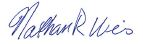 Nathan R Weis